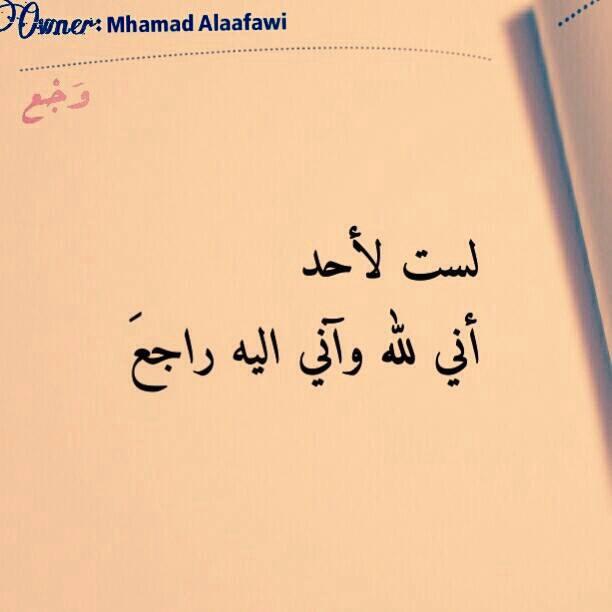 Owner: Mhamad Alaafawi
وَجْع
لست لأحد
أني لله وآني اليه راجعَ